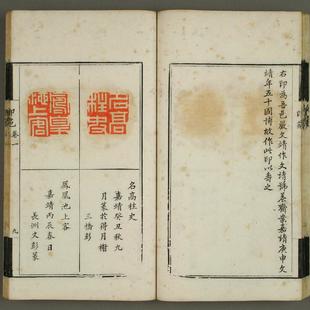 右印為吾邑嚴文靖作文靖號養齋業嘉靖庚申文
靖年五十國博故作此印以壽之
名高柱史
嘉靖癸丑秋九
月篆於得月榭
三橋彭
鳳凰池上客
嘉靖丙辰春日
長洲文彭篆
卷一
九